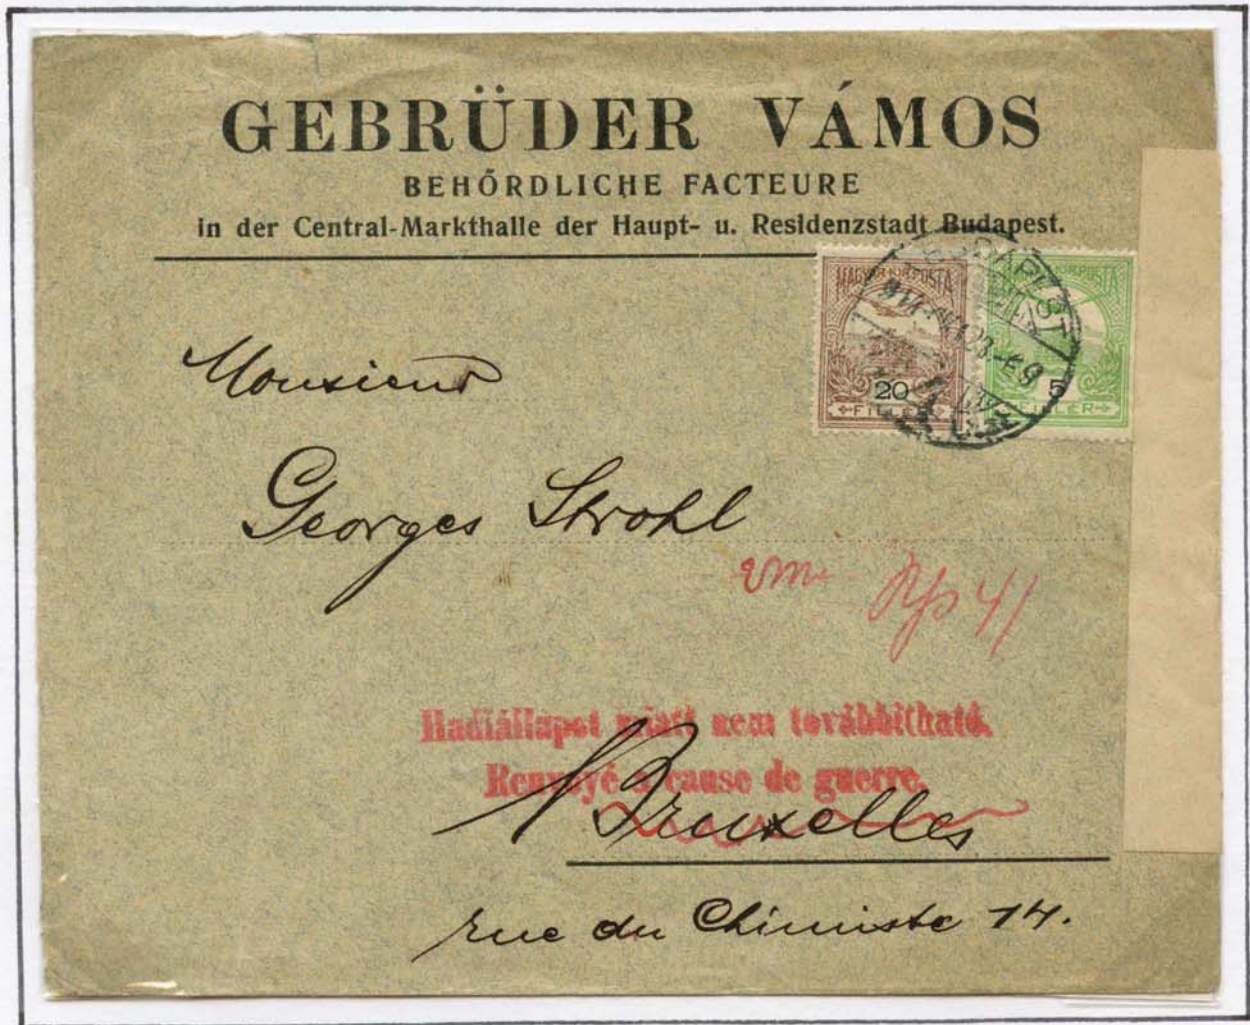 GEBRÜDER VÁMOS
BEHŐRDLICHE FACTEURE
in der Central-Markthalle der Haupt- u. Residenzstadt Budapest.
MAGYAR KIR. POSTA
20
FILLÉR
BUDAPEST
5
FILLÉR
Monsieur
Georges Strohl
41
Hadiállapot miatt nem továbbitható.
Renvoyé a cause de guerre.
Bruxelles
rue du Chimiste 14.